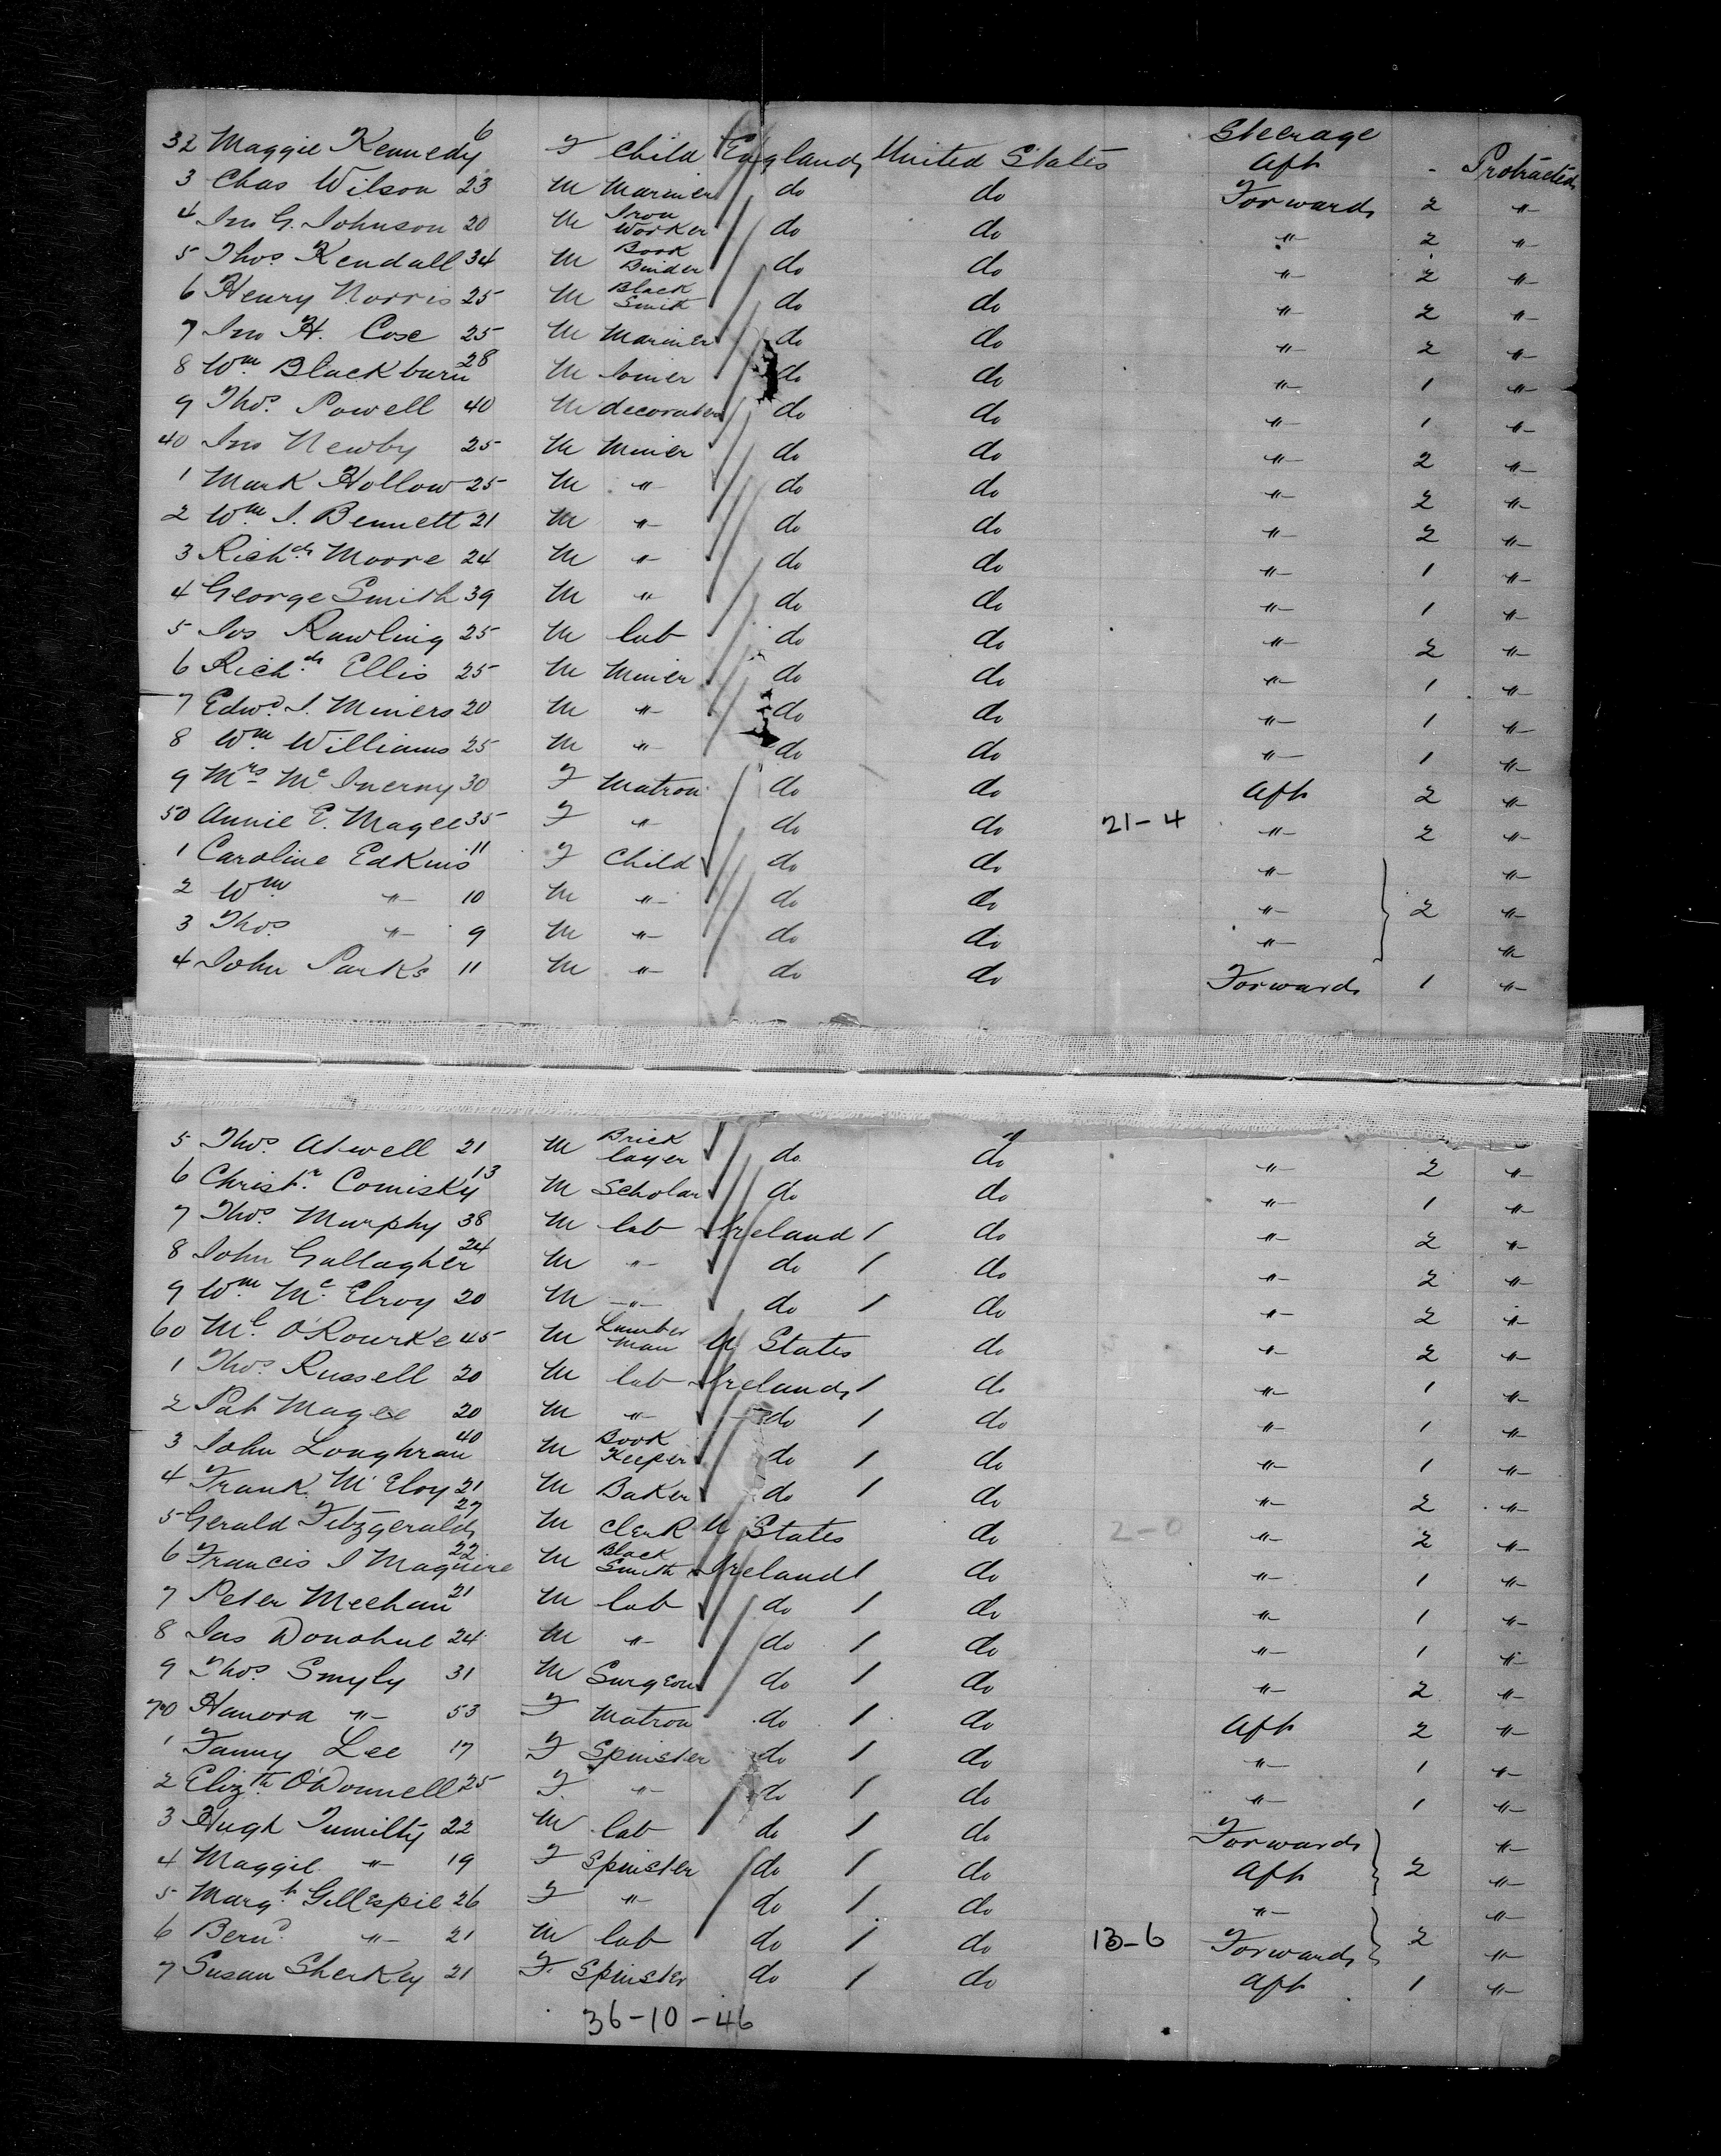 Steerage
32 Maggie Kennedy 6 F Child England United States Aft - Protracted
3 Chas Wilson 23 M Mariner do do Forward 2 "
4 Jno G. Johnson 20 M Iron Worker do do " 2 "
5 Thos Kendall 34 M Book Binder do do " 2 "
6 Henry Norris 25 M Black Smith do do " 2 "
7 Jno H. Cose 25 M Mariner do do " 2 "
8 Wm Blackburn 28 M Joiner do do " 1 "
9 Thos. Powell 40 M decorator do do " 1 "
40 Jno Newby 25 M Miner do do " 2 "
1 Mark Hollow 25 M " do do " 2 "
2 Wm J. Bennett 21 M " do do " 2 "
3 Richd Moore 24 M " do do " 1 "
4 George Smith 39 M " do do " 1 "
5 Jos Rawling 25 M lab do do " 2 "
6 Richd Ellis 25 M Miner do do " 1 "
7 Edwd J. Miners 20 M " do do " 1 "
8 Wm Williams 25 M " do do " 1 "
9 Mrs Mc Inerny 30 F Matron do do Aft 2 "
50 Annie E. Magee 35 F " do do 21-4 " 2 "
1 Caroline Edkins 11 F Child do do " "
2 Wm " 10 M " do do " 2 "
3 Thos. " 9 M " do do " "
4 John Parks 11 M " do do Forward 1 "
5 Thos. Atwell 21 M Brick layer do do " 2 "
6 Christr Comisky 13 M Scholar do do " 1 "
7 Thos. Murphy 38 M lab Ireland 1 do " 2 "
8 John Gallagher 24 M " do 1 do " 2 "
9 Wm Mc Elroy 20 M " do 1 do " 2 "
60 Ml O'Rourke 45 M Lumber Man U States do " 2 "
1 Thos. Russell 20 M lab Ireland 1 do " 1 "
2 Pat Magee 20 M " do 1 do " 1 "
3 John Loughran 40 M Book Keeper do 1 do " 1 "
4 Frank McEloy 21 M Baker do 1 do " 2 "
5 Gerald Fitzgerald 27 M Clerk U States do 2-0 " 2 "
6 Francis J Maguire 22 M Black Smith Ireland 1 do " 1 "
7 Peter Meehan 21 M lab do 1 do " 1 "
8 Jas Donohue 24 M " do 1 do " 1 "
9 Thos Smyly 31 M Surgeon do 1 do " 2 "
70 Hanora " 53 F Matron do 1 do Aft 2 "
1 Fanny Lee 17 F Spinster do 1 do " 1 "
2 Elizth O'Donnell 25 F " do 1 do " 1 "
3 Hugh Tumilty 22 M lab do 1 do Forward "
4 Maggie " 19 F Spinster do 1 do Aft 2 "
5 Margt Gillespie 26 F " do 1 do " "
6 Bernd " 21 M lab do 1 do 13-6 Forward 2 "
7 Susan Sherkey 21 F Spinster do 1 do Aft 1 "
36-10-46